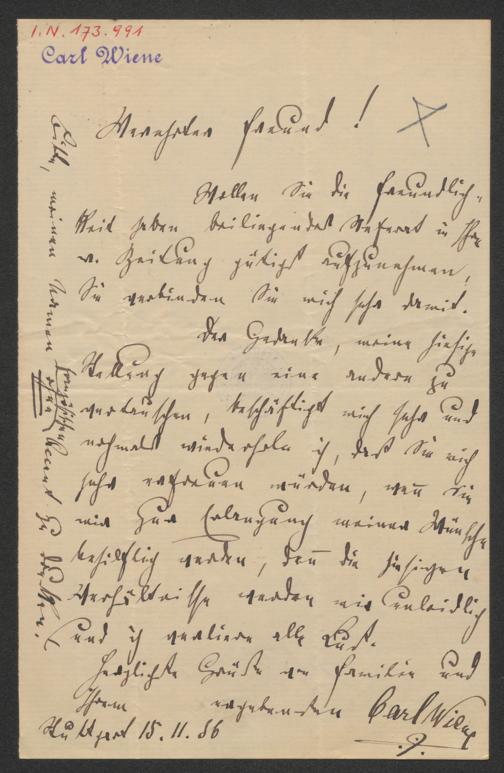 I.N. 173.991
Carl Wiene
Verehrter Freund!
Wollen Sie die Freundlich-
keit haben beiliegendes Referat in Ihre
w. Zeitung gütigst aufzunehmen,
Sie verbinden Sie mich sehr damit.
Der Gedanke, meine hiesige
Stellung gegen eine andere zu
vertauschen, beschäftigt mich sehr und
nochmals wiederhole ich, daß Sie mich
sehr erfreuen würden, wenn Sie
mir zur Erlangung meiner Wünsche
behilflich werden, denn die hiesigen
Verhältnisse werden mir unleidlich
und ich verliere alle Lust.
Herzlichste Grüße an Familie und
Ihren ergebensten Carl Wiene
Stuttgart 15.11.86
Bitte, meinen Namen ohne
französischen Accent zu drucken!